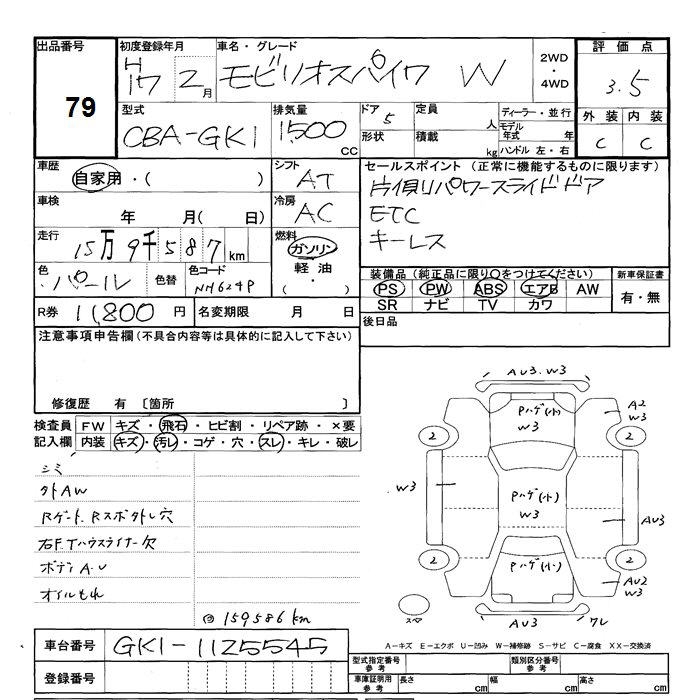 出品番号 初度登録年月 車名・グレード 評価点
79 H17 2月 モビリオスパイク W 2WD・4WD 3.5
型式 排気量 ドア 定員 ディーラー・並行 外装 内装
CBA-GK1 1500 CC 5 人 モデル年式 年 C C
形状 積載 kg ハンドル 左・右
車歴 自家用・( ) シフト AT セールスポイント(正常に機能するものに限ります)
片側リパワースライドドア
車検 年 月( 日) 冷房 AC ETC
走行 15万9千587km 燃料 ガソリン キーレス
軽油・( )
色 パール 色替 色コード NH624P 装備品(純正品に限り○をつけてください) 新車保証書
PS PW ABS エアB AW 有・無
SR ナビ TV カワ
R券 11,800円 名変期限 月 日 後日品
注意事項申告欄(不具合内容等は具体的に記入して下さい)
修復歴 有 〔箇所 〕
検査員 FW キズ・飛石・ヒビ割・リペア跡・×要
記入欄 内装 キズ・汚レ・コゲ・穴・スレ・キレ・破レ
シミ
外AW
Rゲート、Rスポ外し穴
右F.Tハウスライナー欠
ボディA.U
オイルもれ
159586km
AU3.W3
Pハゲ(小)
W3
A2
W3
2 2
W3
Pハゲ(小)
W3
AU3
2 2
Pハゲ(小)
AU2
W3
スペア
AU3
ワレ
A-キズ E-エクボ U-凹み W-補修跡 S-サビ C-腐食 XX-交換済
車台番号 GK1-1125545
型式指定番号 参考 類別区分番号 参考
登録番号 車庫証明用 参考 長さ cm 幅 cm 高さ cm